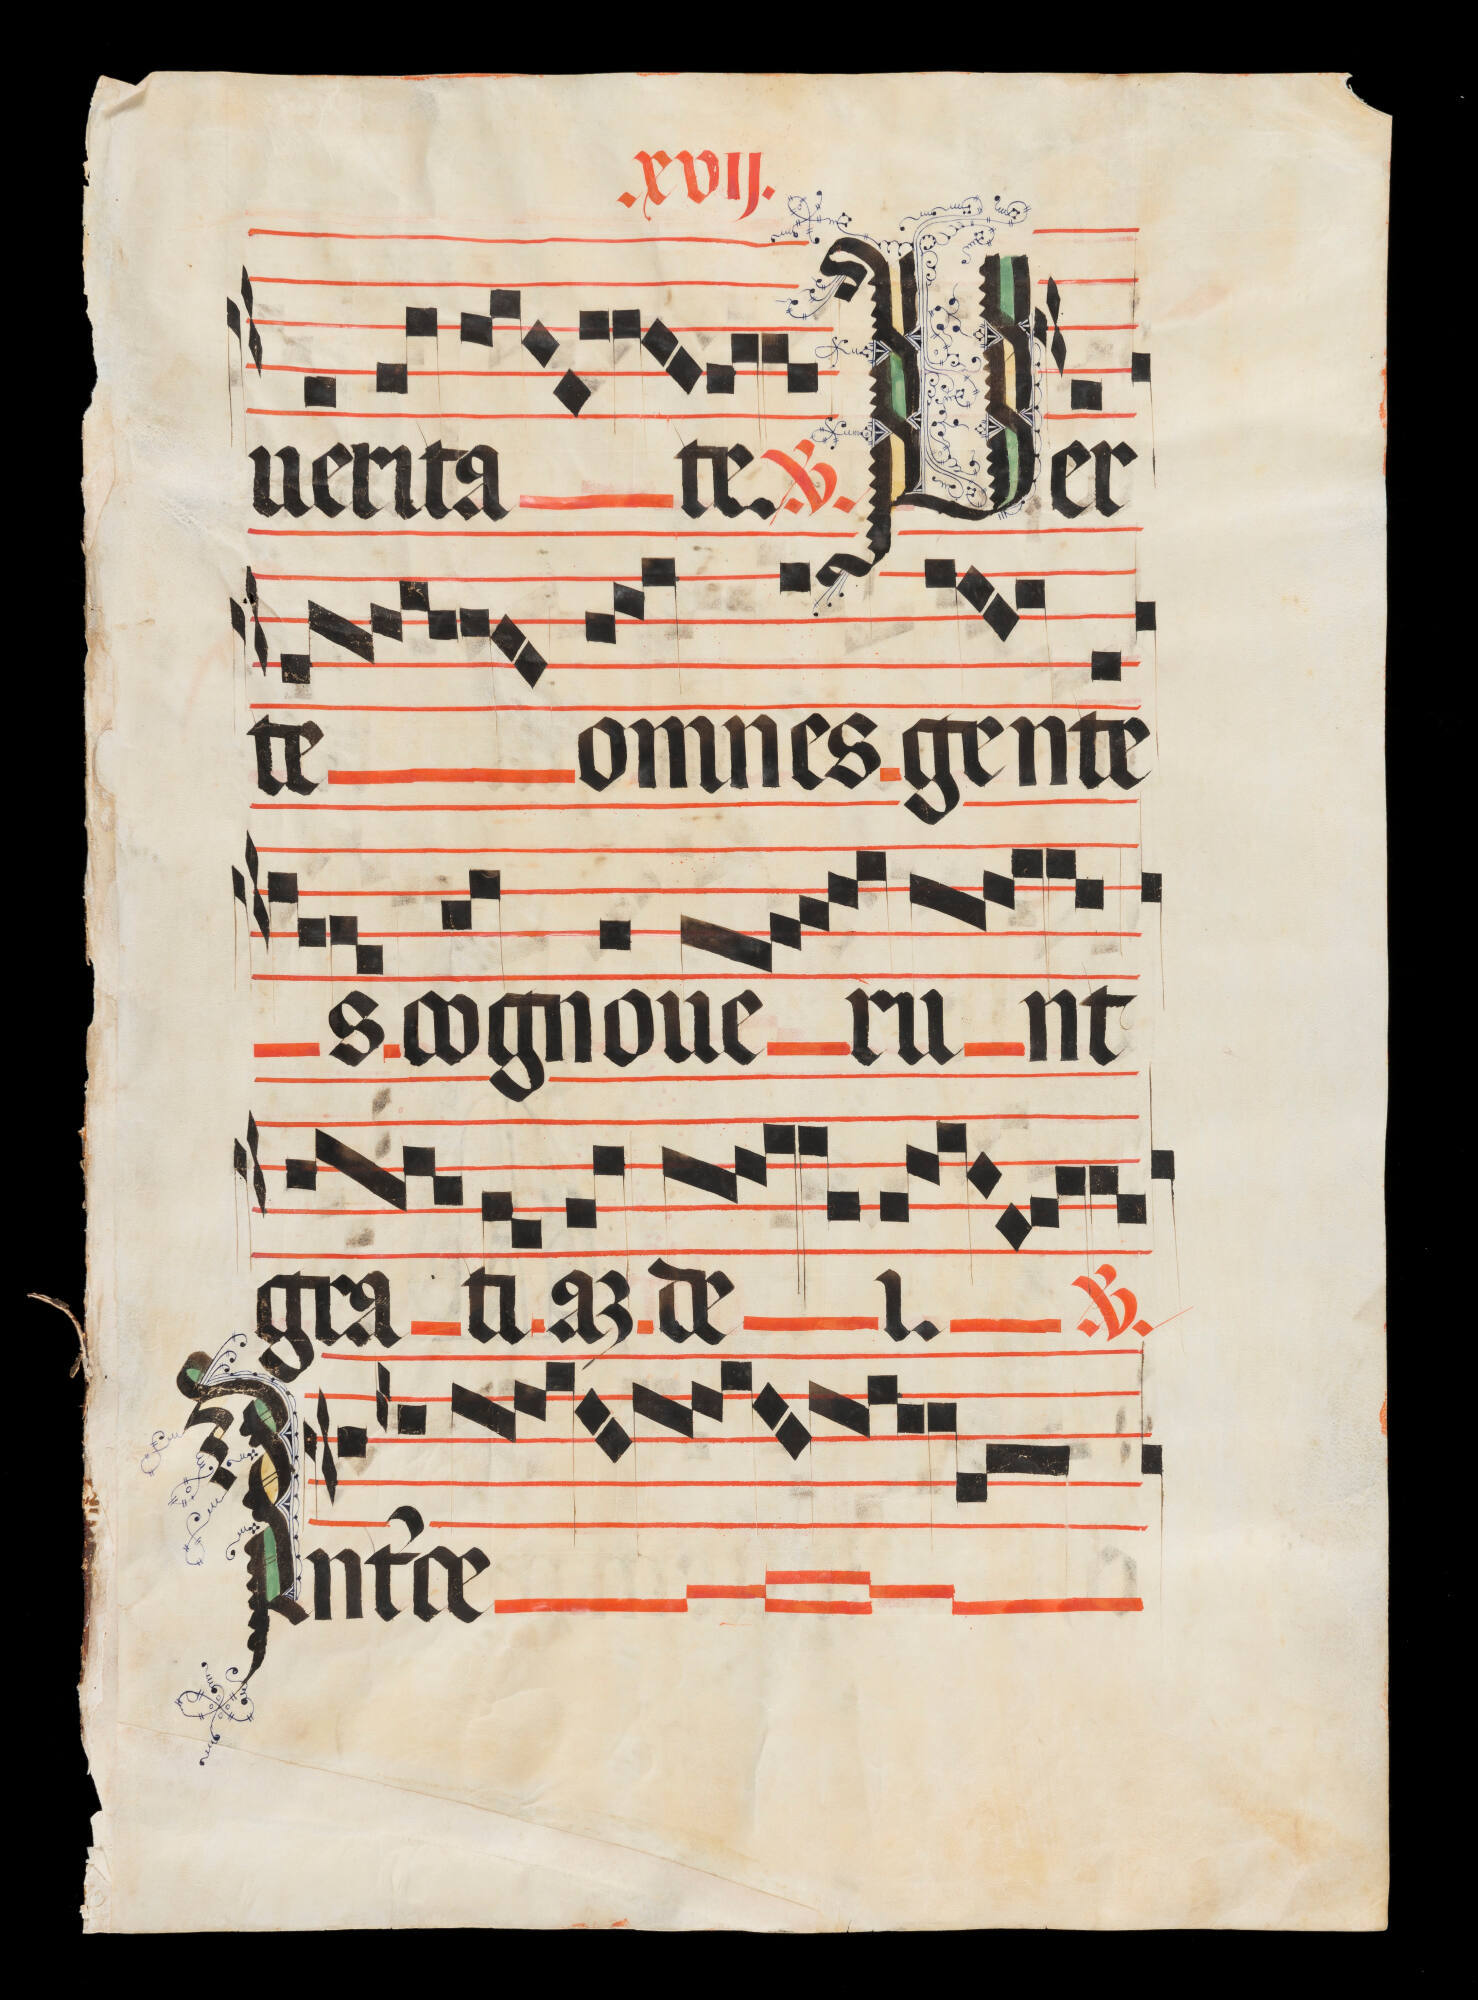 .xvij.
uerita te. V. Per
te omnes gente
s cognoue ru nt
gra ti aʒ de i. V.
Intce